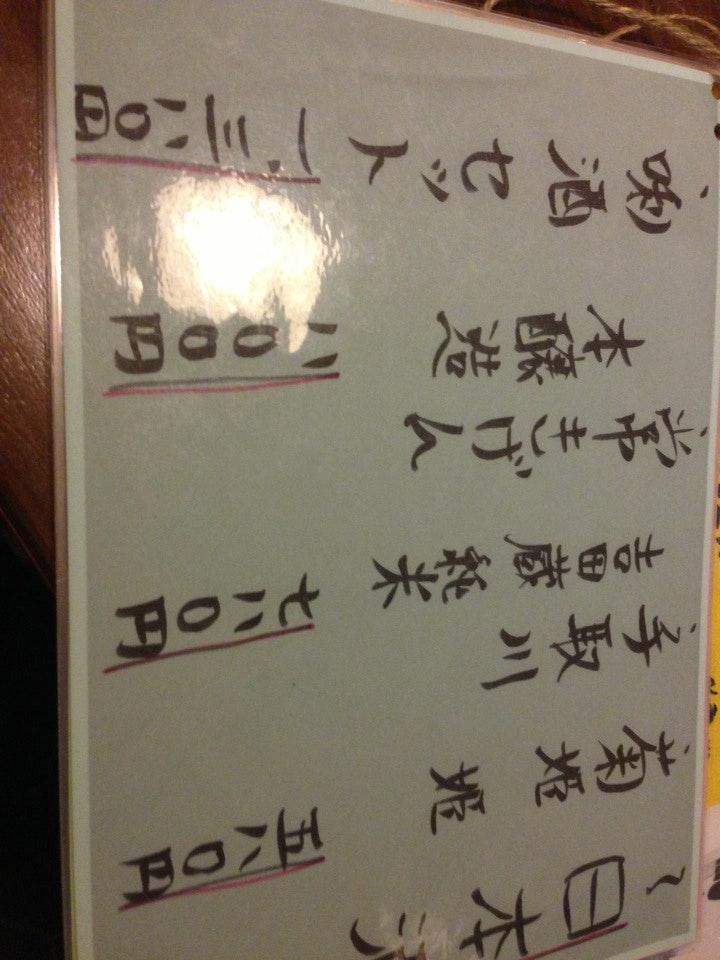 〜日本
・菊姫 姫 五八〇円
・手取川
吉田蔵 純米 七八〇円
・常きげん
本醸造 八〇〇円
・唎酒セット 一、三八〇円